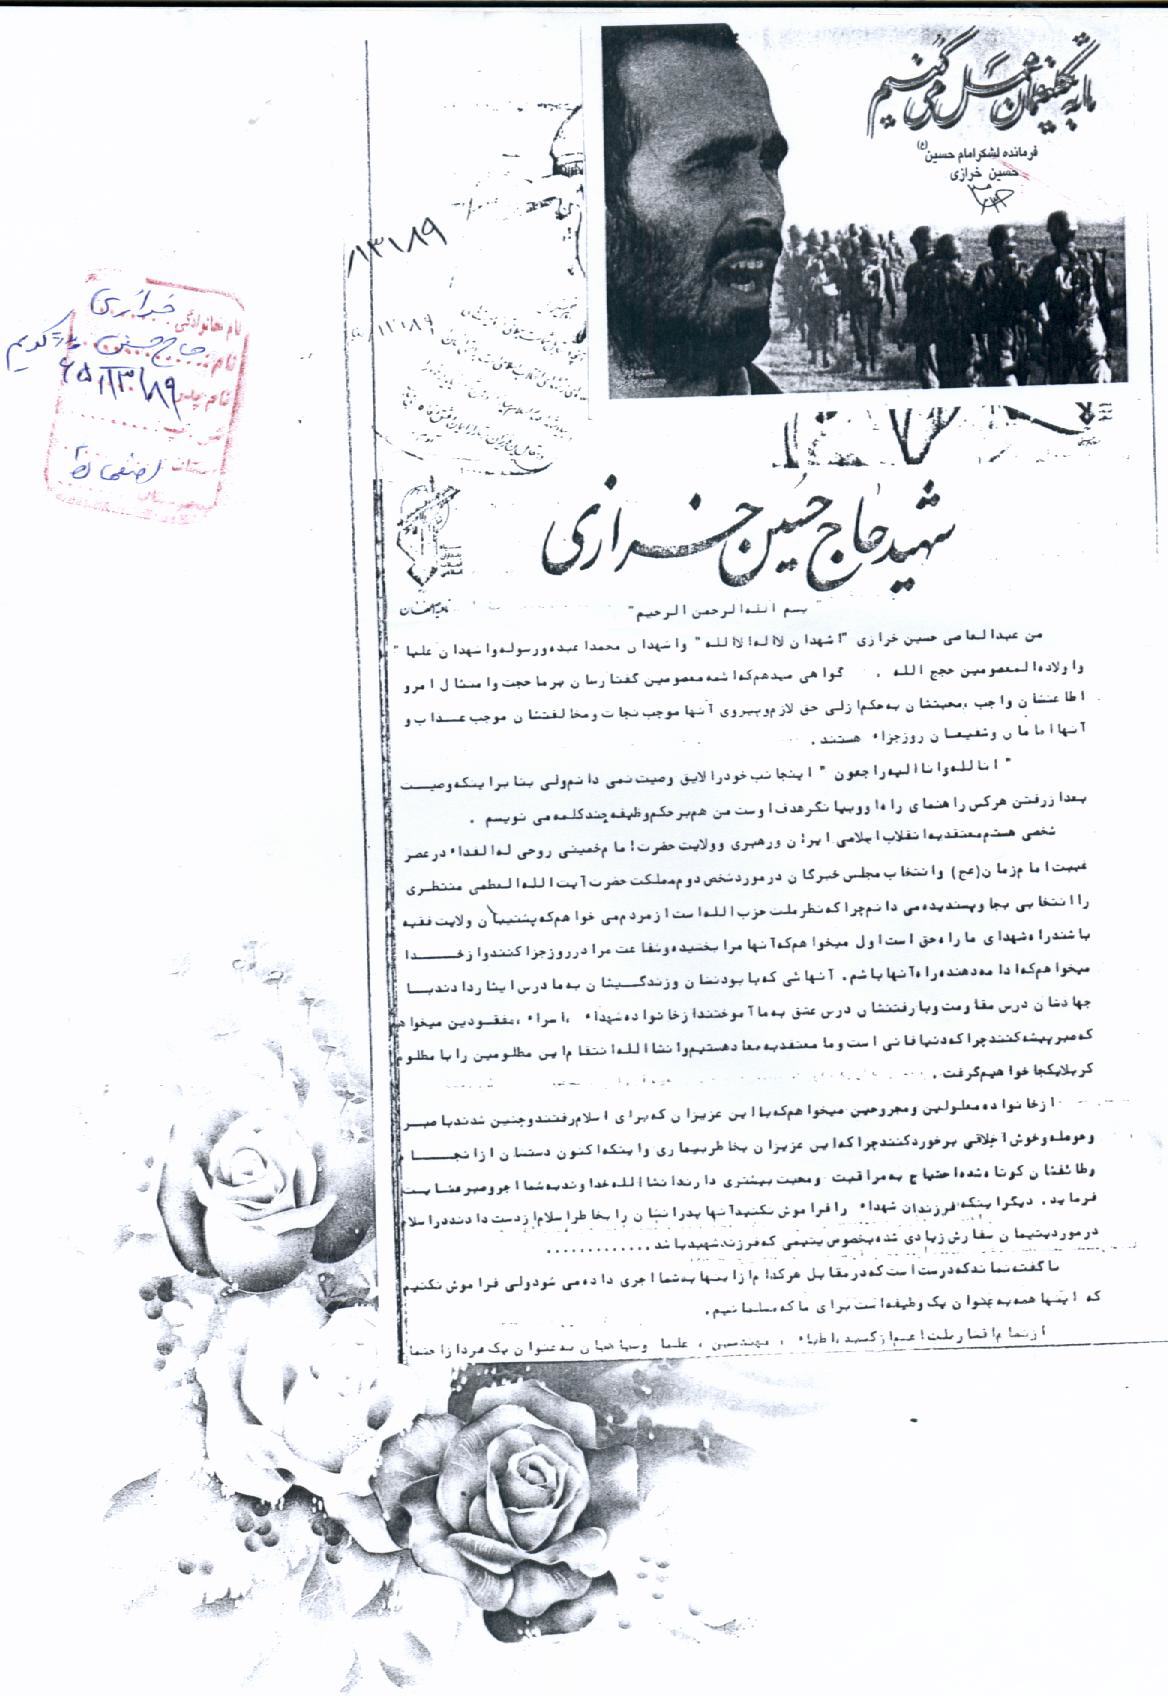 ما به تکلیفمان عمل می کنیم
فرمانده لشکر امام حسین (ع)
حسین خرازی
۱۳۱۸۹
۱۳۱۸۹
نام خانوادگی خرازی
نام: حاج حسین
نام پدر کریم
۶۵/ ۱۳۱۸۹
استان اصفهان
شهرستان
شهید حاج حسین خرازی
ناحیه اصفهان
"بسم الله الرحمن الرحیم"
من عبدالعاصی حسین خرازی "اشهدان لااله الاالله" واشهدان محمدا عبده ورسوله واشهدان علیا"
واولاده المعصومین حجج الله . گواهی میدهم که ائمه معصومین گفتارسان برما حجت وامتثال امرو
اطاعتشان واجب ،محبتشان به حکم ازلی حق لازم وپیروی آنها موجب نجات ومخالفتشان موجب عذاب و
آنها امامان وشفیعان روزجزاء هستند .
"انالله واناالیه راجعون" اینجانب خودرالایق وصیت نمی دانم ولی بنابراینکه وصیت
بعدازرفتن هرکس راهنمای راه اووبیانگرهدف اوست من هم برحکم وظیفه چندکلمه می نویسم .
شخصی هستم معتقدبه انقلاب اسلامی ایران ورهبری وولایت حضرت امام خمینی روحی له الفداء درعصر
غیبت امام زمان (عج) وانتخاب مجلس خبرگان درموردشخص دوم مملکت حضرت آیت الله العظمی منتظری
راانتخابی بجا وپسندیده می دانم چراکه نظرملت حزب الله است ازمردم می خواهم که پشتیبان ولایت فقیه
باشندراه شهدای ما راه حق است اول میخواهم که آنها مرا بخشیده وشفاعت مرادرروزجزا کنندوازخدا
میخواهم که ادامه دهنده راه آنها باشم. آنهائی که با بودنشان وزندگیشان به ما درس ایثاردادندبا
جهادشان درس مقاومت وبارفتنشان درس عشق به ما آموختندازخانواده شهداء ،اسراء ،مفقودین میخواهم
که صبرپیشه کنندچراکه دنیا فانی است وما معتقدبه معاد هستیم وانشاالله انتقام این مظلومین را با مظلوم
کربلایکجا خواهیم گرفت .
ازخانواده معلولین ومجروحین میخواهم که با این عزیزان که برای اسلام رفتندوچنین شدندبا صبر
وحوصله وخوش اخلاقی برخوردکنندچراکه این عزیزان بخاطربیماری واینکه اکنون دستشان ازانجام
وظائفشان کوتاه شده احتیاج به مراقبت ومحبت بیشتری دارندانشاالله خداوندبه شما اجروصبرعنایت
فرماید. دیگراینکه فرزندان شهداء رافراموش نکنیدآنها پدرانشان را بخاطراسلام ازدست دادنددراسلام
درموردیتیمان سفارش زیادی شده بخصوص یتیمی که فرزندشهیدباشد ............
ناگفته نماندکه درست است که درمقابل هرکدام ازاینها به شما اجری داده می شودولی فراموش نکنیم
که اینها همه به عنوان یک وظیفه است برای ماکه مسلمانیم.
ازتمام اقشارملت اعم ازکسبه ،اطباء ، مهندسین ، علما وسپاهیان به عنوان یک فردازاجتماع